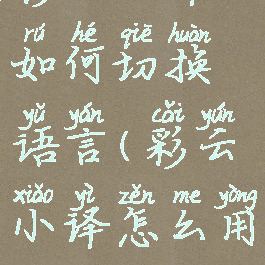 rú hé qiē huàn
如何切换
yǔ yán cǎi yún
语言(彩云
xiǎo yì zěn me yòng
小译怎么用